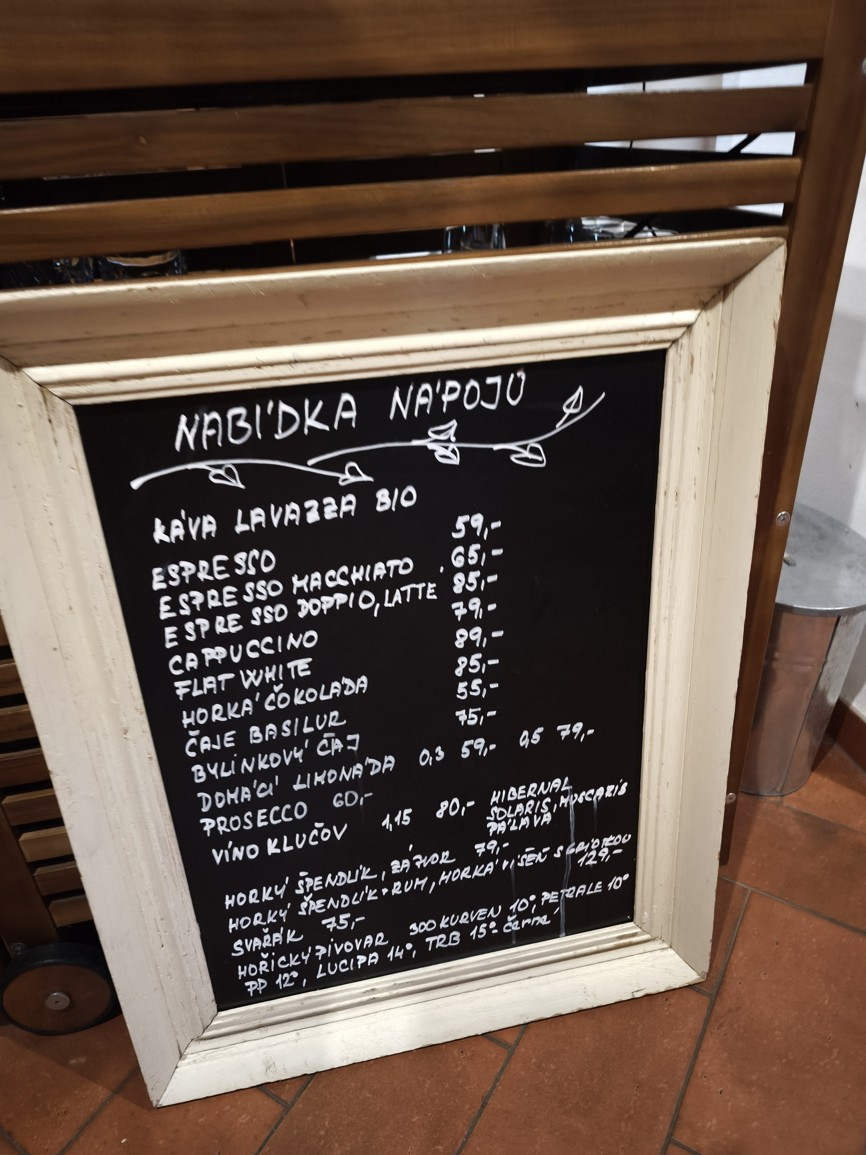 NABÍDKA NÁPOJŮ
KÁVA LAVAZZA BIO
ESPRESSO 59,-
ESPRESSO MACCHIATO 65,-
ESPRESSO DOPPIO, LATTE 85,-
CAPPUCCINO 79,-
FLAT WHITE 89,-
HORKÁ ČOKOLÁDA 85,-
ČAJE BASILUR 55,-
BYLINKOVÝ ČAJ 75,-
DOMÁCÍ LIMONÁDA 0,3 59,- 0,5 79,-
PROSECCO 60,-
VÍNO KLUČOV 1,15 80,- HIBERNAL
SOLARIS, MUSCARIS
PÁLAVA
HORKÝ ŠPENDLÍK, ZÁZVOR 79,-
HORKÝ ŠPENDLÍK + RUM, HORKÁ VIŠEŇ S GRIOTKOU
129,-
SVAŘÁK 75,-
HOŘICKÝ PIVOVAR 300 KURVEN 10° PETRALE 10°
PP 12°, LUCIPA 14°, TRB 15° černé